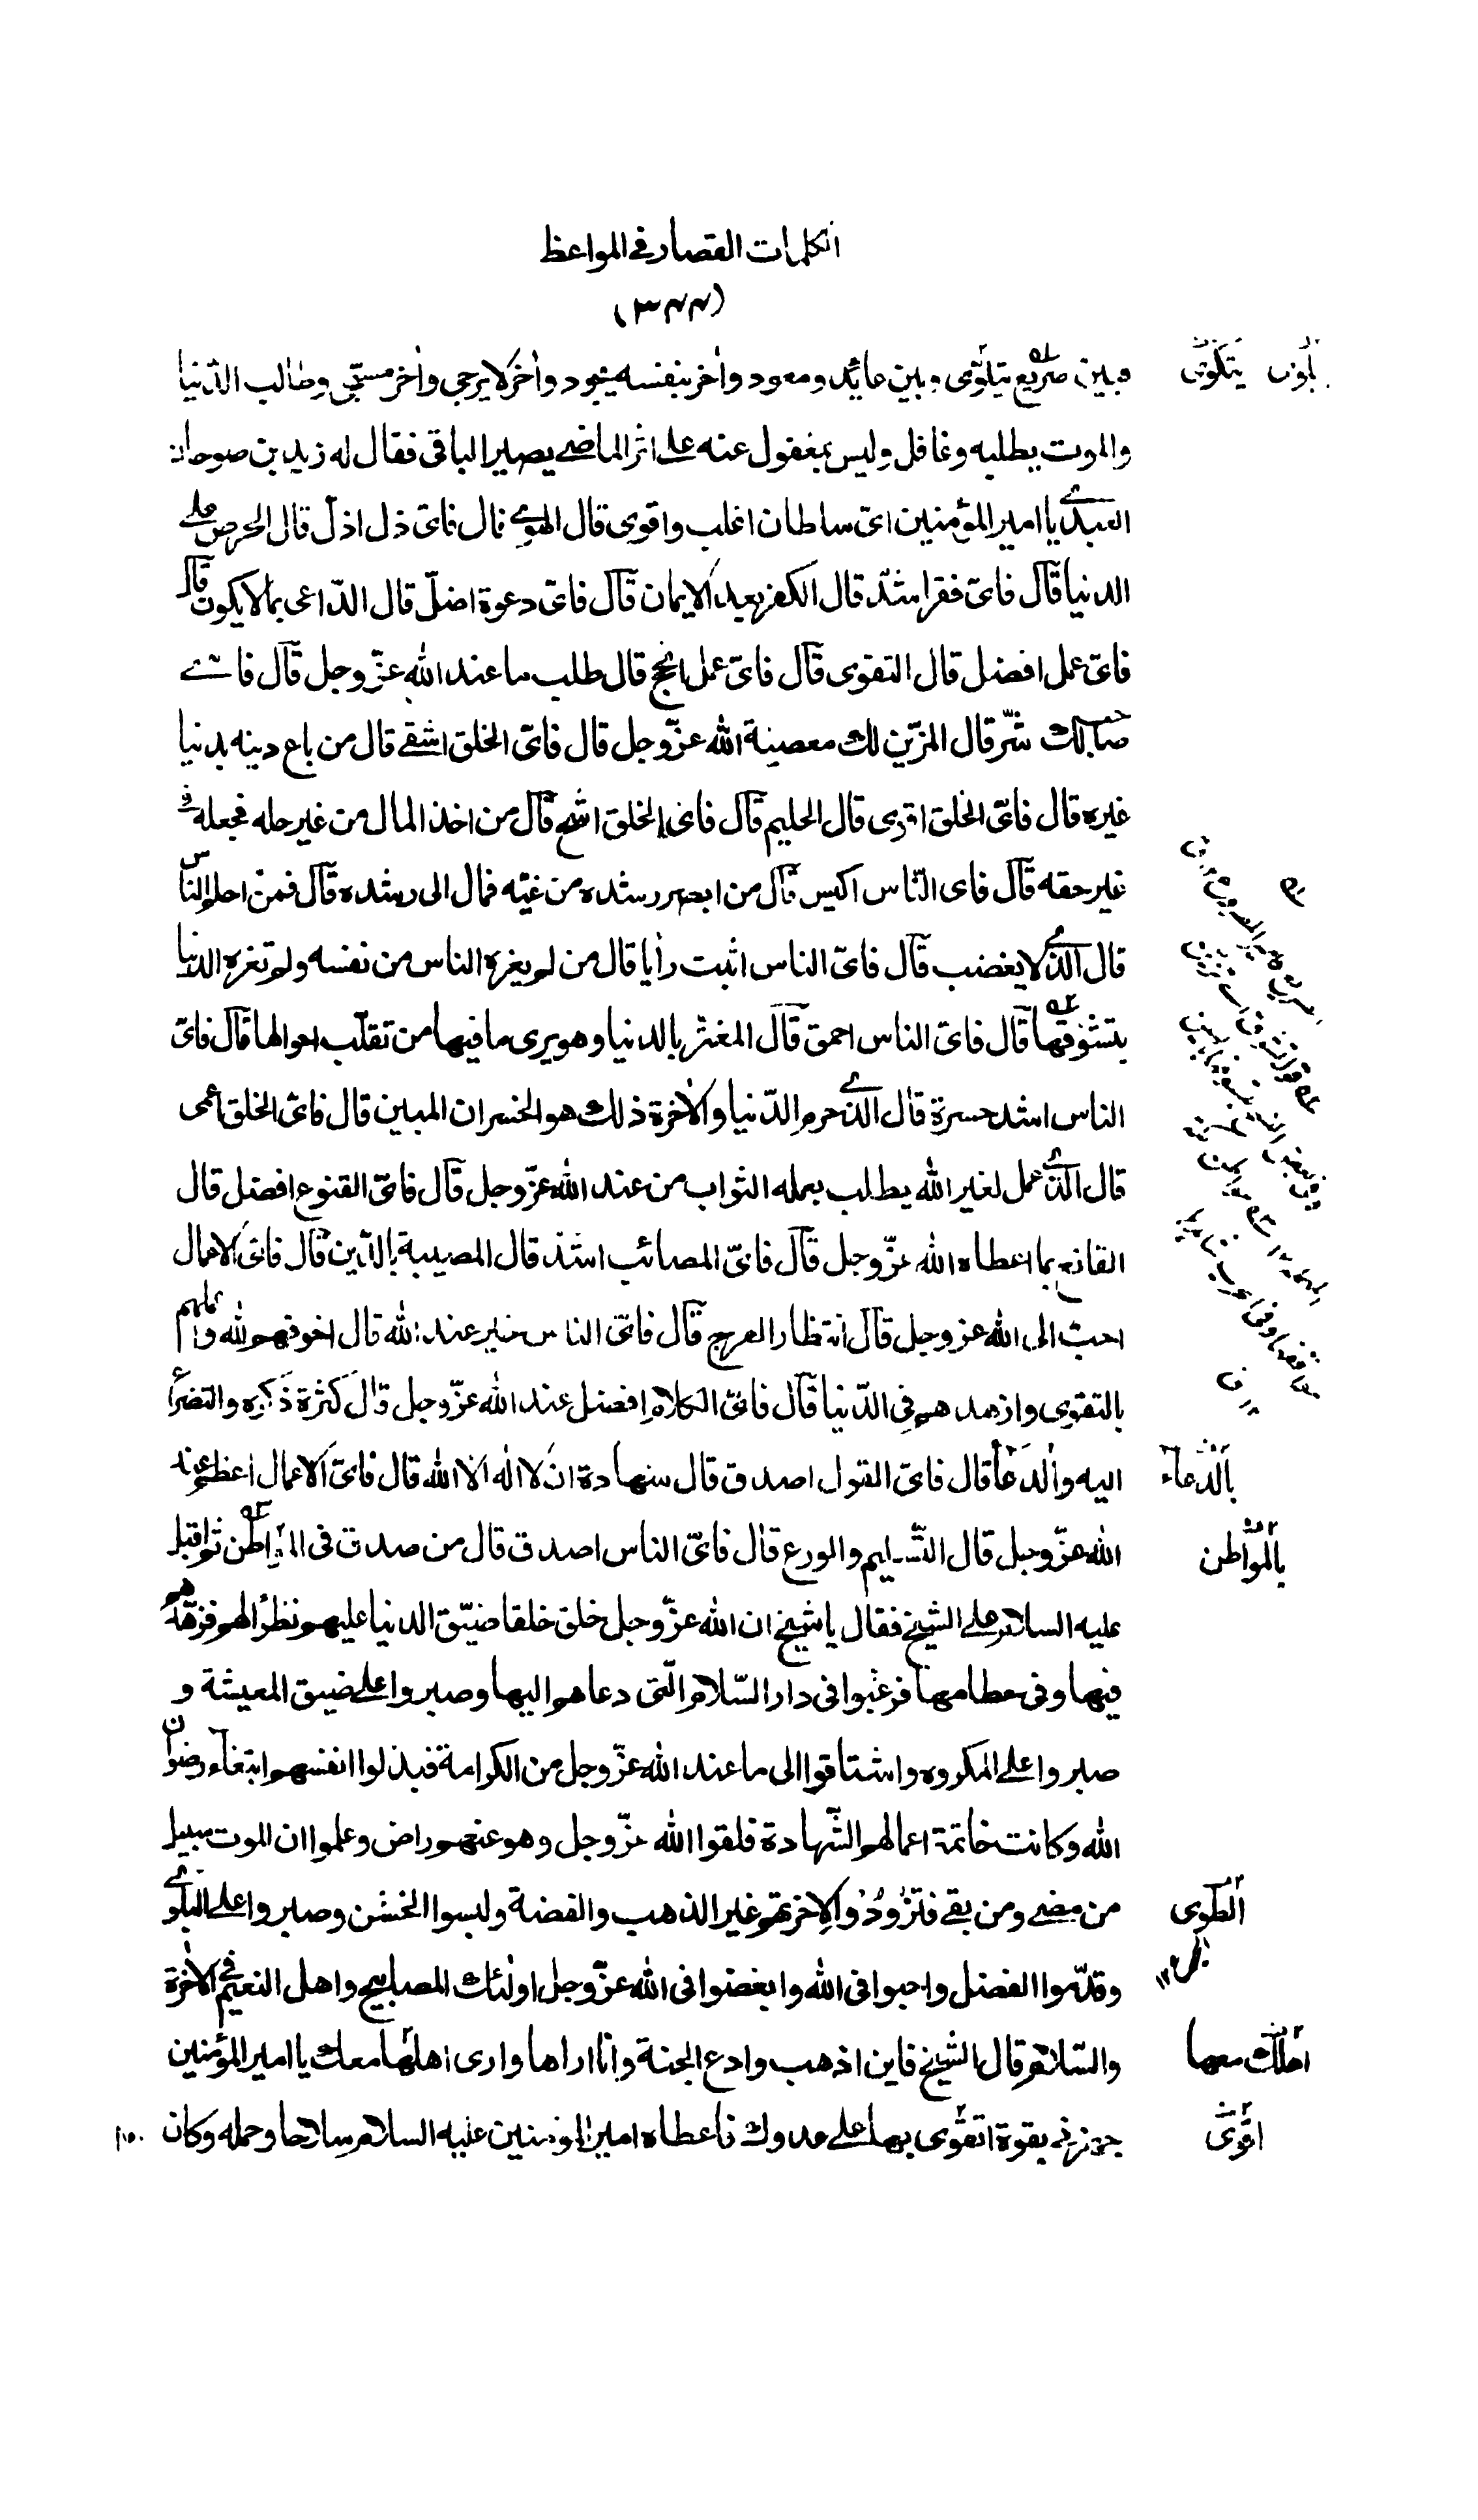 الكلمات القصار في المواعظ
(٣٤٤)
فبين صريع يتلوى وبين عائد ومعود واخر بنفسه يجود واخر لا يرجى واخر مسجى وطالب الدنيا
والموت يطلبه وغافل وليس بمغفول عنه على اثر الماضي يصير الباقي فقال له زيد بن صوحان
العبدي يا امير المؤمنين اىّ سلطان اغلب واقوى قال الهوى قال فاىّ ذل اذلّ قال الحرص على
الدنيا قال فاىّ فقر اشدّ قال الكفر بعد الايمان قال فاىّ دعوة اضلّ قال الدّاعى بما لا يكون قال
فاىّ عمل افضل قال التقوى قال فاىّ عمل انجح قال طلب ما عند الله عزّ وجل قال فاىّ
صاحب لك شرّ قال المزيّن لك معصية الله عزّ وجل قال فاىّ الخلق اشقى قال من باع دينه بدنيا
غيره قال فاىّ الخلق اقوى قال الحليم قال فاىّ الخلق اشح قال من اخذ المال من غير حله فجعله في
غير حقه قال فاى النّاس اكيس قال من ابصر رشده من غيّه فمال الى رشده قال فمن احلم الناس
قال الذي لا يغضب قال فاىّ الناس اثبت رأيا قال من لم يغره الناس من نفسه ولم تغره الدنيا
بتشوفها قال فاىّ الناس احمق قال المغتر بالدنيا وهو يرى ما فيها من تقلّب احوالها قال فاىّ
الناس اشد حسرة قال الذي حرم الدّنيا والاخرة ذلك هو الخسران المبين قال فاىّ الخلق اعمى
قال الذي عمل لغير الله يطلب بعمله الثواب من عند الله عزّ وجل قال فاىّ القنوع افضل قال
القانع بما اعطاه الله عزّ وجل قال فاىّ المصائب اشدّ قال المصيبة بالدّين قال فاىّ الاعمال
احبّ الى الله عز وجل قال انتظار الفرج قال فاىّ الناس خير عند الله قال اخوفهم لله واعملهم
بالتقوى وازهدهم في الدّنيا قال فاىّ الكلام افضل عند الله عزّ وجل قال كثرة ذكره والتضرع
اليه والدعاء قال فاىّ القول اصدق قال شهادة ان لا اله الا الله قال فاىّ الاعمال اعظم عند
الله عزّ وجل قال التّسليم والورع قال فاىّ الناس اصدق قال من صدق في المواطن ثم اقبل
عليه السلام على الشيخ فقال يا شيخ ان الله عزّ وجل خلق خلقا ضيّق الدنيا عليهم نظرا لهم فزهّدهم
فيها وفي حطامها فرغبوا في دار السّلام الّتى دعاهم اليها وصبروا على ضيق المعيشة و
صبروا على المكروه واشتاقوا الى ما عند الله عزّ وجل من الكرامة فبذلوا انفسهم ابتغاء رضوان
الله وكانت خاتمة اعمالهم الشّهادة فلقوا الله عزّ وجل وهو عنهم راض وعلموا ان الموت سبيل
من مضى ومن بقى فتزوّدوا لاخرتهم غير الذهب والفضة ولبسوا الخشن وصبروا على البلوى
وقدّموا الفضل واحبوا في الله وابغضوا في الله عزّ وجل اولئك المصابيح واهل النعيم في الاخرة
والسّلام قال الشيخ فاين اذهب وادع الجنة وانا اراها وارى اهلها معك يا امير المؤمنين
جهزنى بقوة اتقوّى بها على عدوك فاعطاه امير المؤمنين عليه السلام سلاحا وحمله وكان
بالدعاء
بالمواطن
الطوى
اهلك معها
اقوى